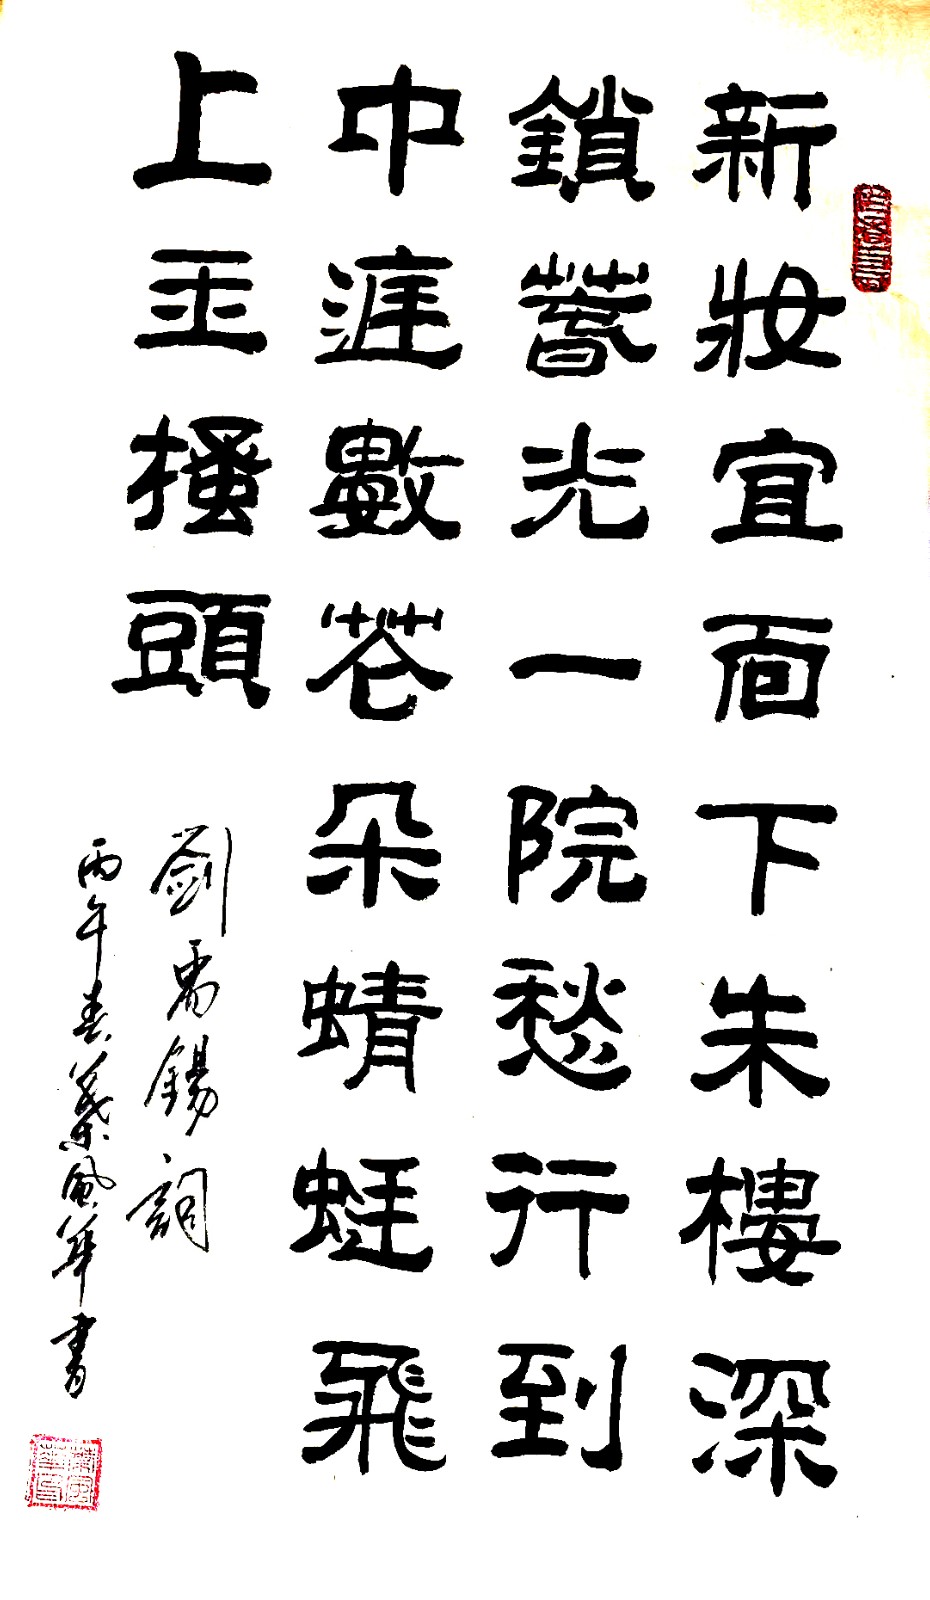 新妝宜面下朱樓深
鎖萅光一院愁行到
中庭數花朵蜻蜓飛
上玉搔頭
劉禹錫詞
丙午春葉風華書